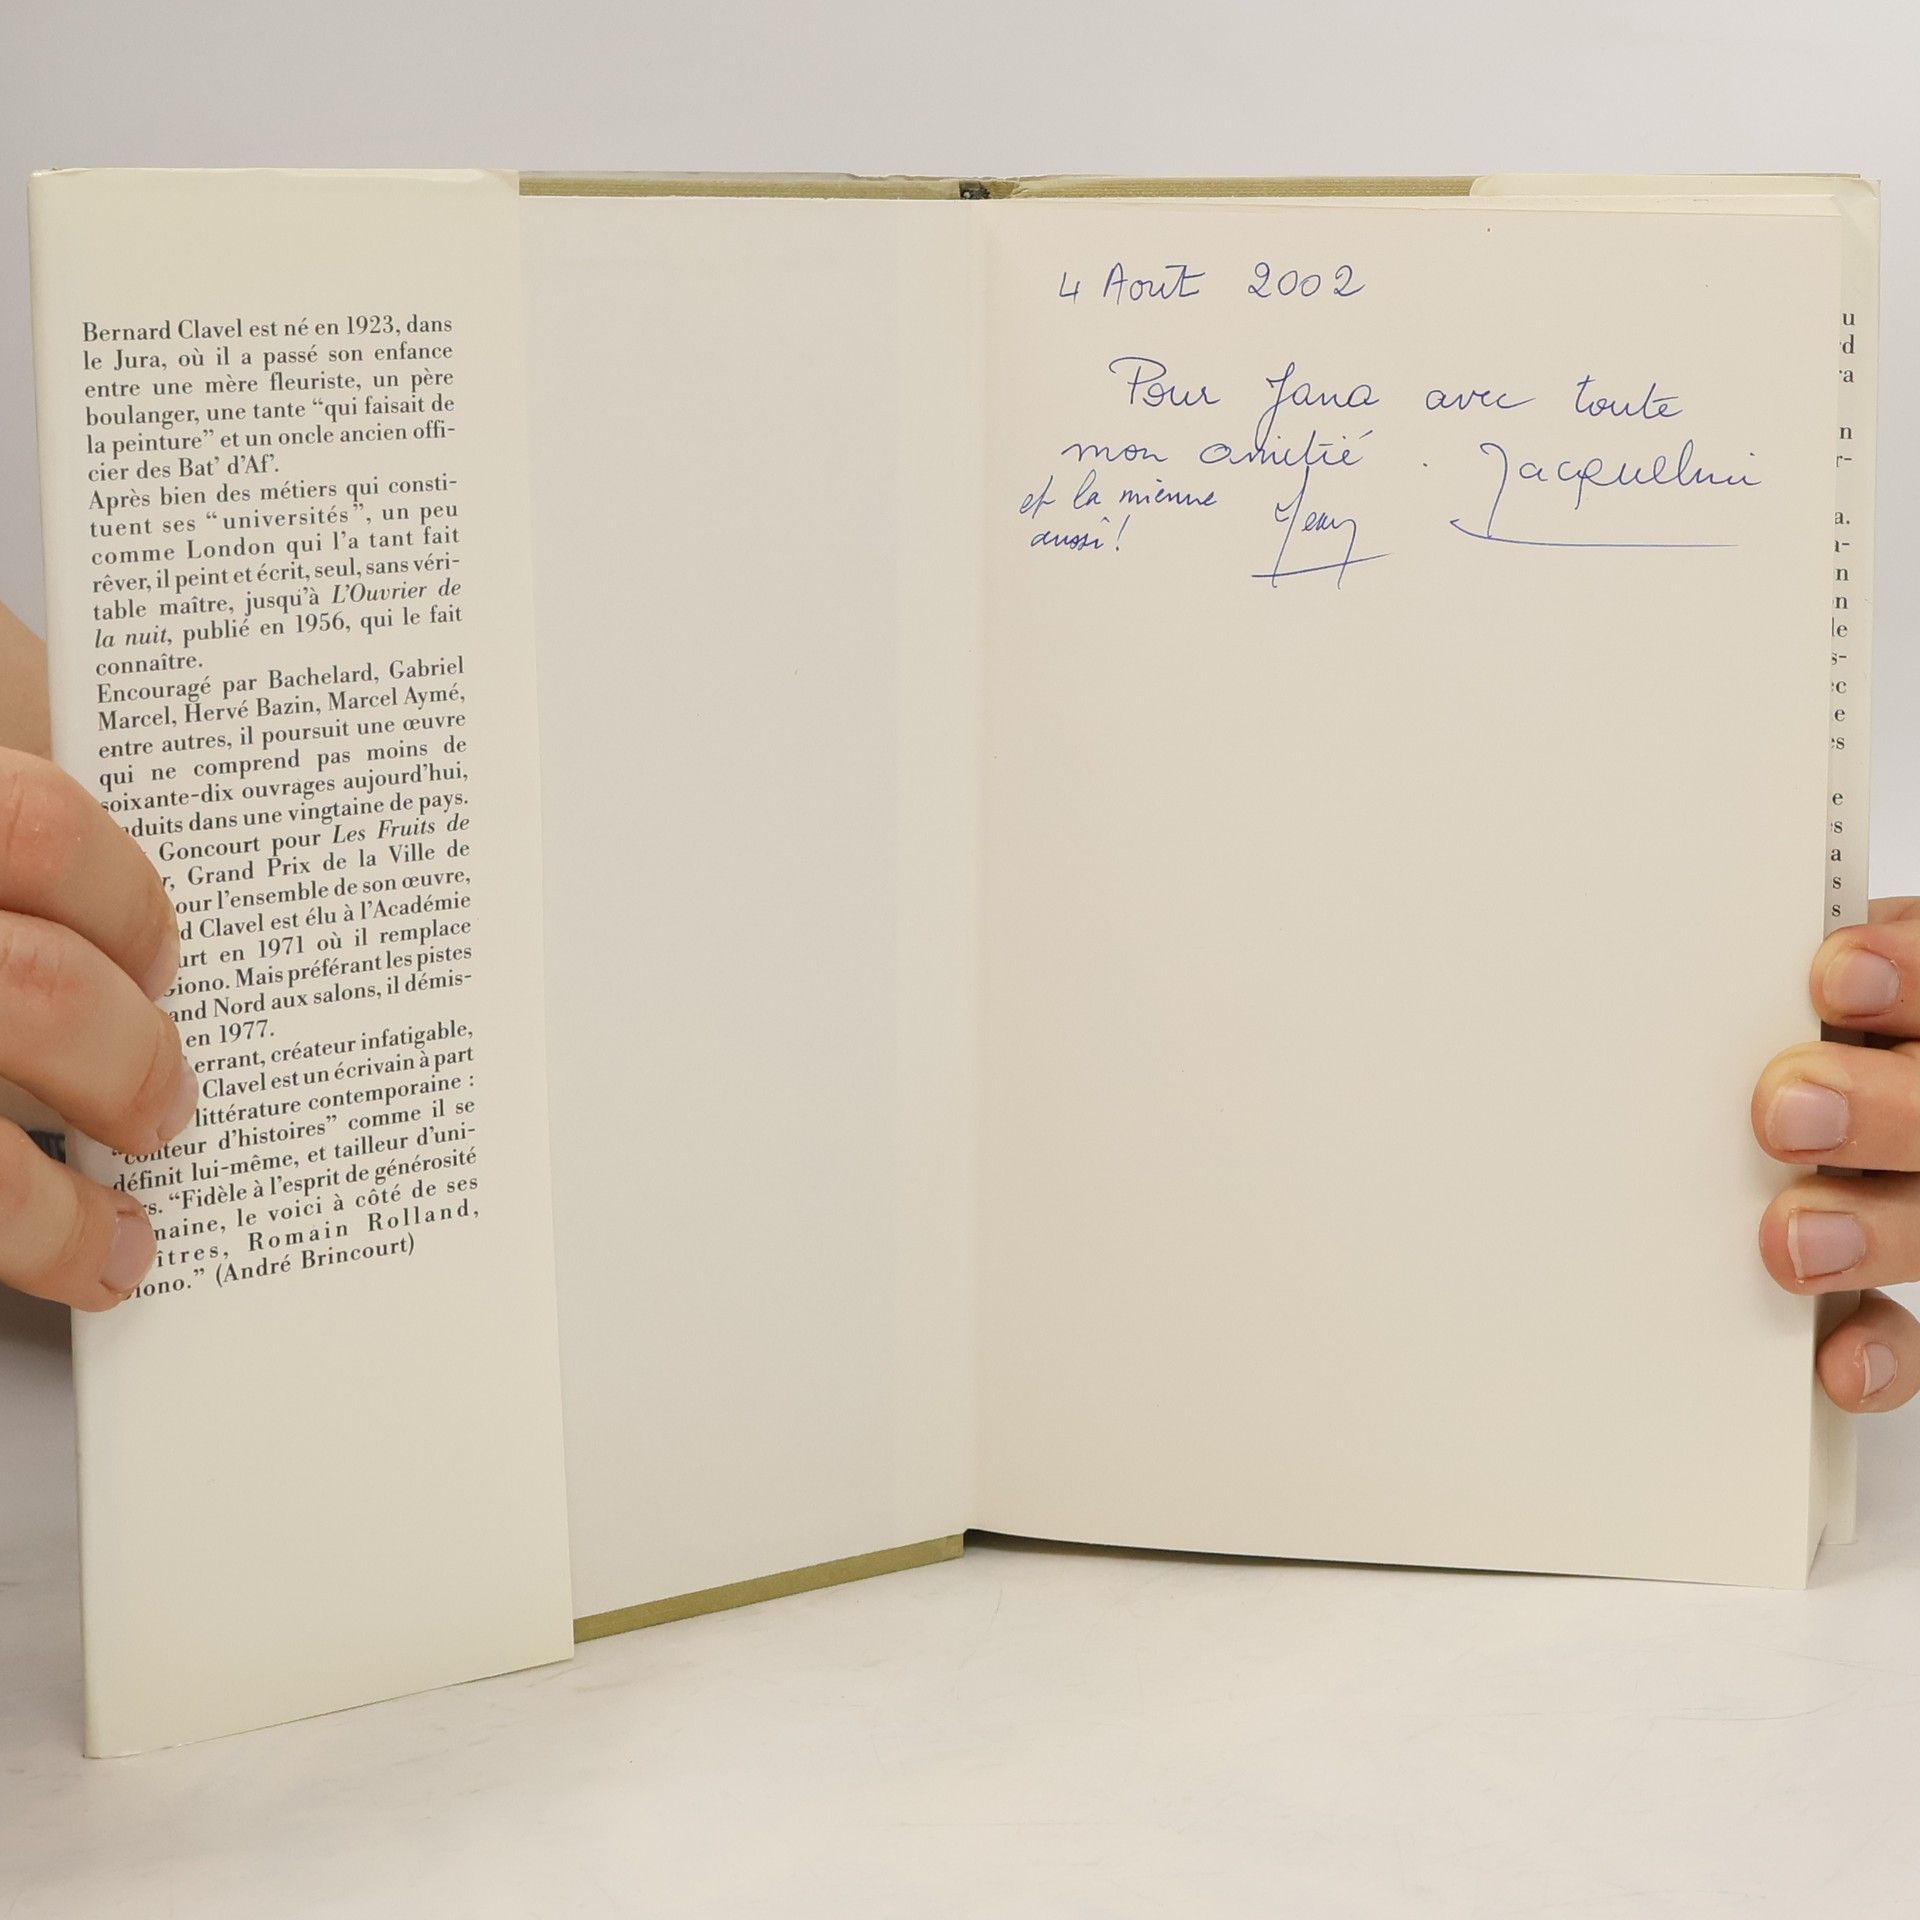 Bernard Clavel est né en 1923, dans
le Jura, où il a passé son enfance
entre une mère fleuriste, un père
boulanger, une tante “qui faisait de
la peinture” et un oncle ancien offi-
cier des Bat’ d’Af’.
Après bien des métiers qui consti-
tuent ses “universités”, un peu
comme London qui l’a tant fait
rêver, il peint et écrit, seul, sans véri-
table maître, jusqu’à L’Ouvrier de
la nuit, publié en 1956, qui le fait
connaître.
Encouragé par Bachelard, Gabriel
Marcel, Hervé Bazin, Marcel Aymé,
entre autres, il poursuit une œuvre
qui ne comprend pas moins de
soixante-dix ouvrages aujourd’hui,
duits dans une vingtaine de pays.
Goncourt pour Les Fruits de
r, Grand Prix de la Ville de
our l’ensemble de son œuvre,
d Clavel est élu à l’Académie
urt en 1971 où il remplace
Giono. Mais préférant les pistes
and Nord aux salons, il démis-
en 1977.
errant, créateur infatigable,
Clavel est un écrivain à part
littérature contemporaine :
“conteur d’histoires” comme il se
définit lui-même, et tailleur d’uni-
rs. “Fidèle à l’esprit de générosité
maine, le voici à côté de ses
îtres, Romain Rolland,
Giono.” (André Brincourt)
4 Août 2002
Pour Jana avec toute
mon amitié. Jacqueline
et la mienne Jean
aussi!